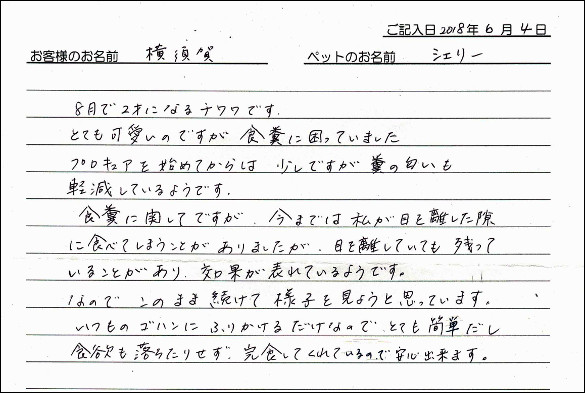 ご記入日 2018年 6月 4日
お客様のお名前 横須賀 ペットのお名前 シェリー
8月で2才になるチワワです.
とても可愛いのですが 食糞に困っていました
プロキュアを始めてからは 少しですが 糞の匂いも
軽減しているようです.
食糞に関してですが、今までは私が目を離した隙
に食べてしまうことが ありましたが、目を離していても 残って
いることがあり、効果が表れているようです。
なので このまま 続けて 様子を見ようと思っています。
いつものゴハンに ふりかけるだけなので、とても簡単だし
食欲も落ちたりせず、完食してくれているので安心出来ます。